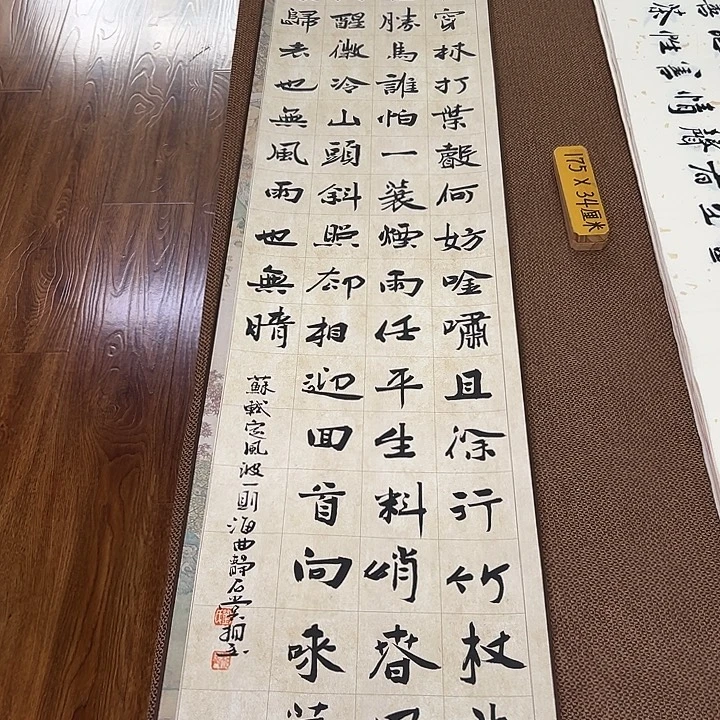 穿林打葉聲何妨唫嘯且徐行竹杖
勝馬誰怕一蓑煙雨任平生料峭春
醒微冷山頭斜照却相迎回首向来
歸去也無風雨也無晴
蘇軾定風波一則海曲靜石堂
175 X 34厘米